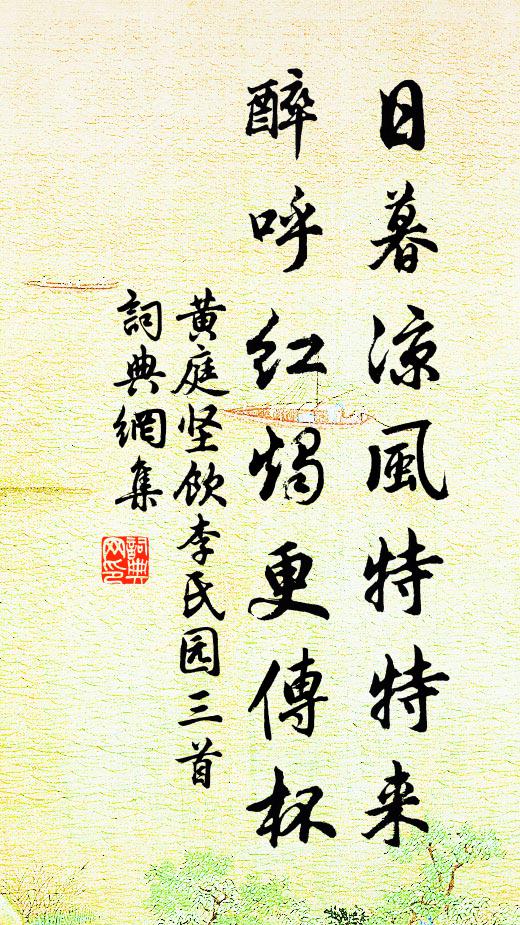 日暮凉風特特来
醉呼紅燭更傳杯
黄庭坚飲李氏园三首
詞典網集
詞典
网印